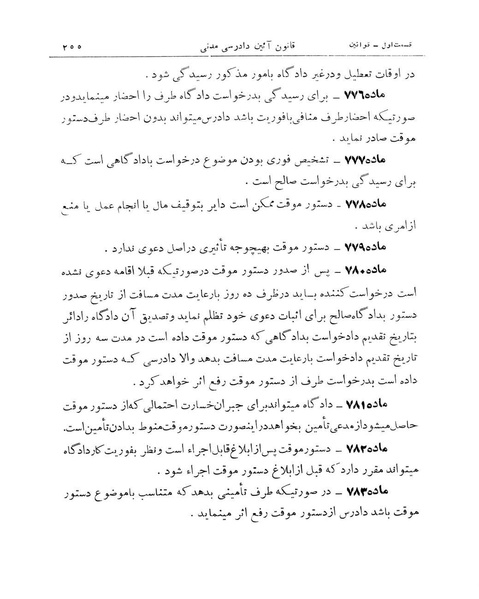 قسمت اول ـ قوانین قانون آئین دادرسی مدنی ۲۵۵
در اوقات تعطیل ودرغیر دادگاه بامور مذکور رسیدگی شود .
ماده ۷۷۶ ـ برای رسیدگی بدرخواست دادگاه طرف را احضار مینمایدودر
صورتیکه احضارطرف منافی بافوریت باشد دادرس میتواند بدون احضار طرف دستور
موقت صادر نماید .
ماده ۷۷۷ ـ تشخیص فوری بودن موضوع درخواست بادادگاهی است که
برای رسیدگی بدرخواست صالح است .
ماده ۷۷۸ ـ دستور موقت ممکن است دایر بتوقیف مال یا انجام عمل یا منع
ازامری باشد .
ماده ۷۷۹ ـ دستور موقت بهیچوجه تأثیری دراصل دعوی ندارد .
ماده ۷۸۰ ـ پس از صدور دستور موقت درصورتیکه قبلا اقامه دعوی نشده
است درخواست کننده باید درظرف ده روز بارعایت مدت مسافت از تاریخ صدور
دستور بدادگاه صالح برای اثبات دعوی خود تظلم نماید وتصدیق آن دادگاه رادائر
بتاریخ تقدیم دادخواست بدادگاهی که دستور موقت داده است در مدت سه روز از
تاریخ تقدیم دادخواست بارعایت مدت مسافت بدهد والا دادرسی که دستور موقت
داده است بدرخواست طرف از دستور موقت رفع اثر خواهد کرد .
ماده ۷۸۱ ـ دادگاه میتواند برای جبران خسارت احتمالی که از دستور موقت
حاصل میشود از مدعی تأمین بخواهد در اینصورت دستور موقت منوط بدادن تأمین است.
ماده ۷۸۲ ـ دستور موقت پس از ابلاغ قابل اجراء است ونظر بفوریت کار دادگاه
میتواند مقرر دارد که قبل از ابلاغ دستور موقت اجراء شود .
ماده ۷۸۳ ـ در صورتیکه طرف تأمینی بدهد که متناسب باموضوع دستور
موقت باشد دادرس از دستور موقت رفع اثر مینماید .